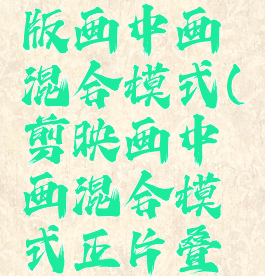 版画中画
混合模式(
剪映画中
画混合模
式正片叠